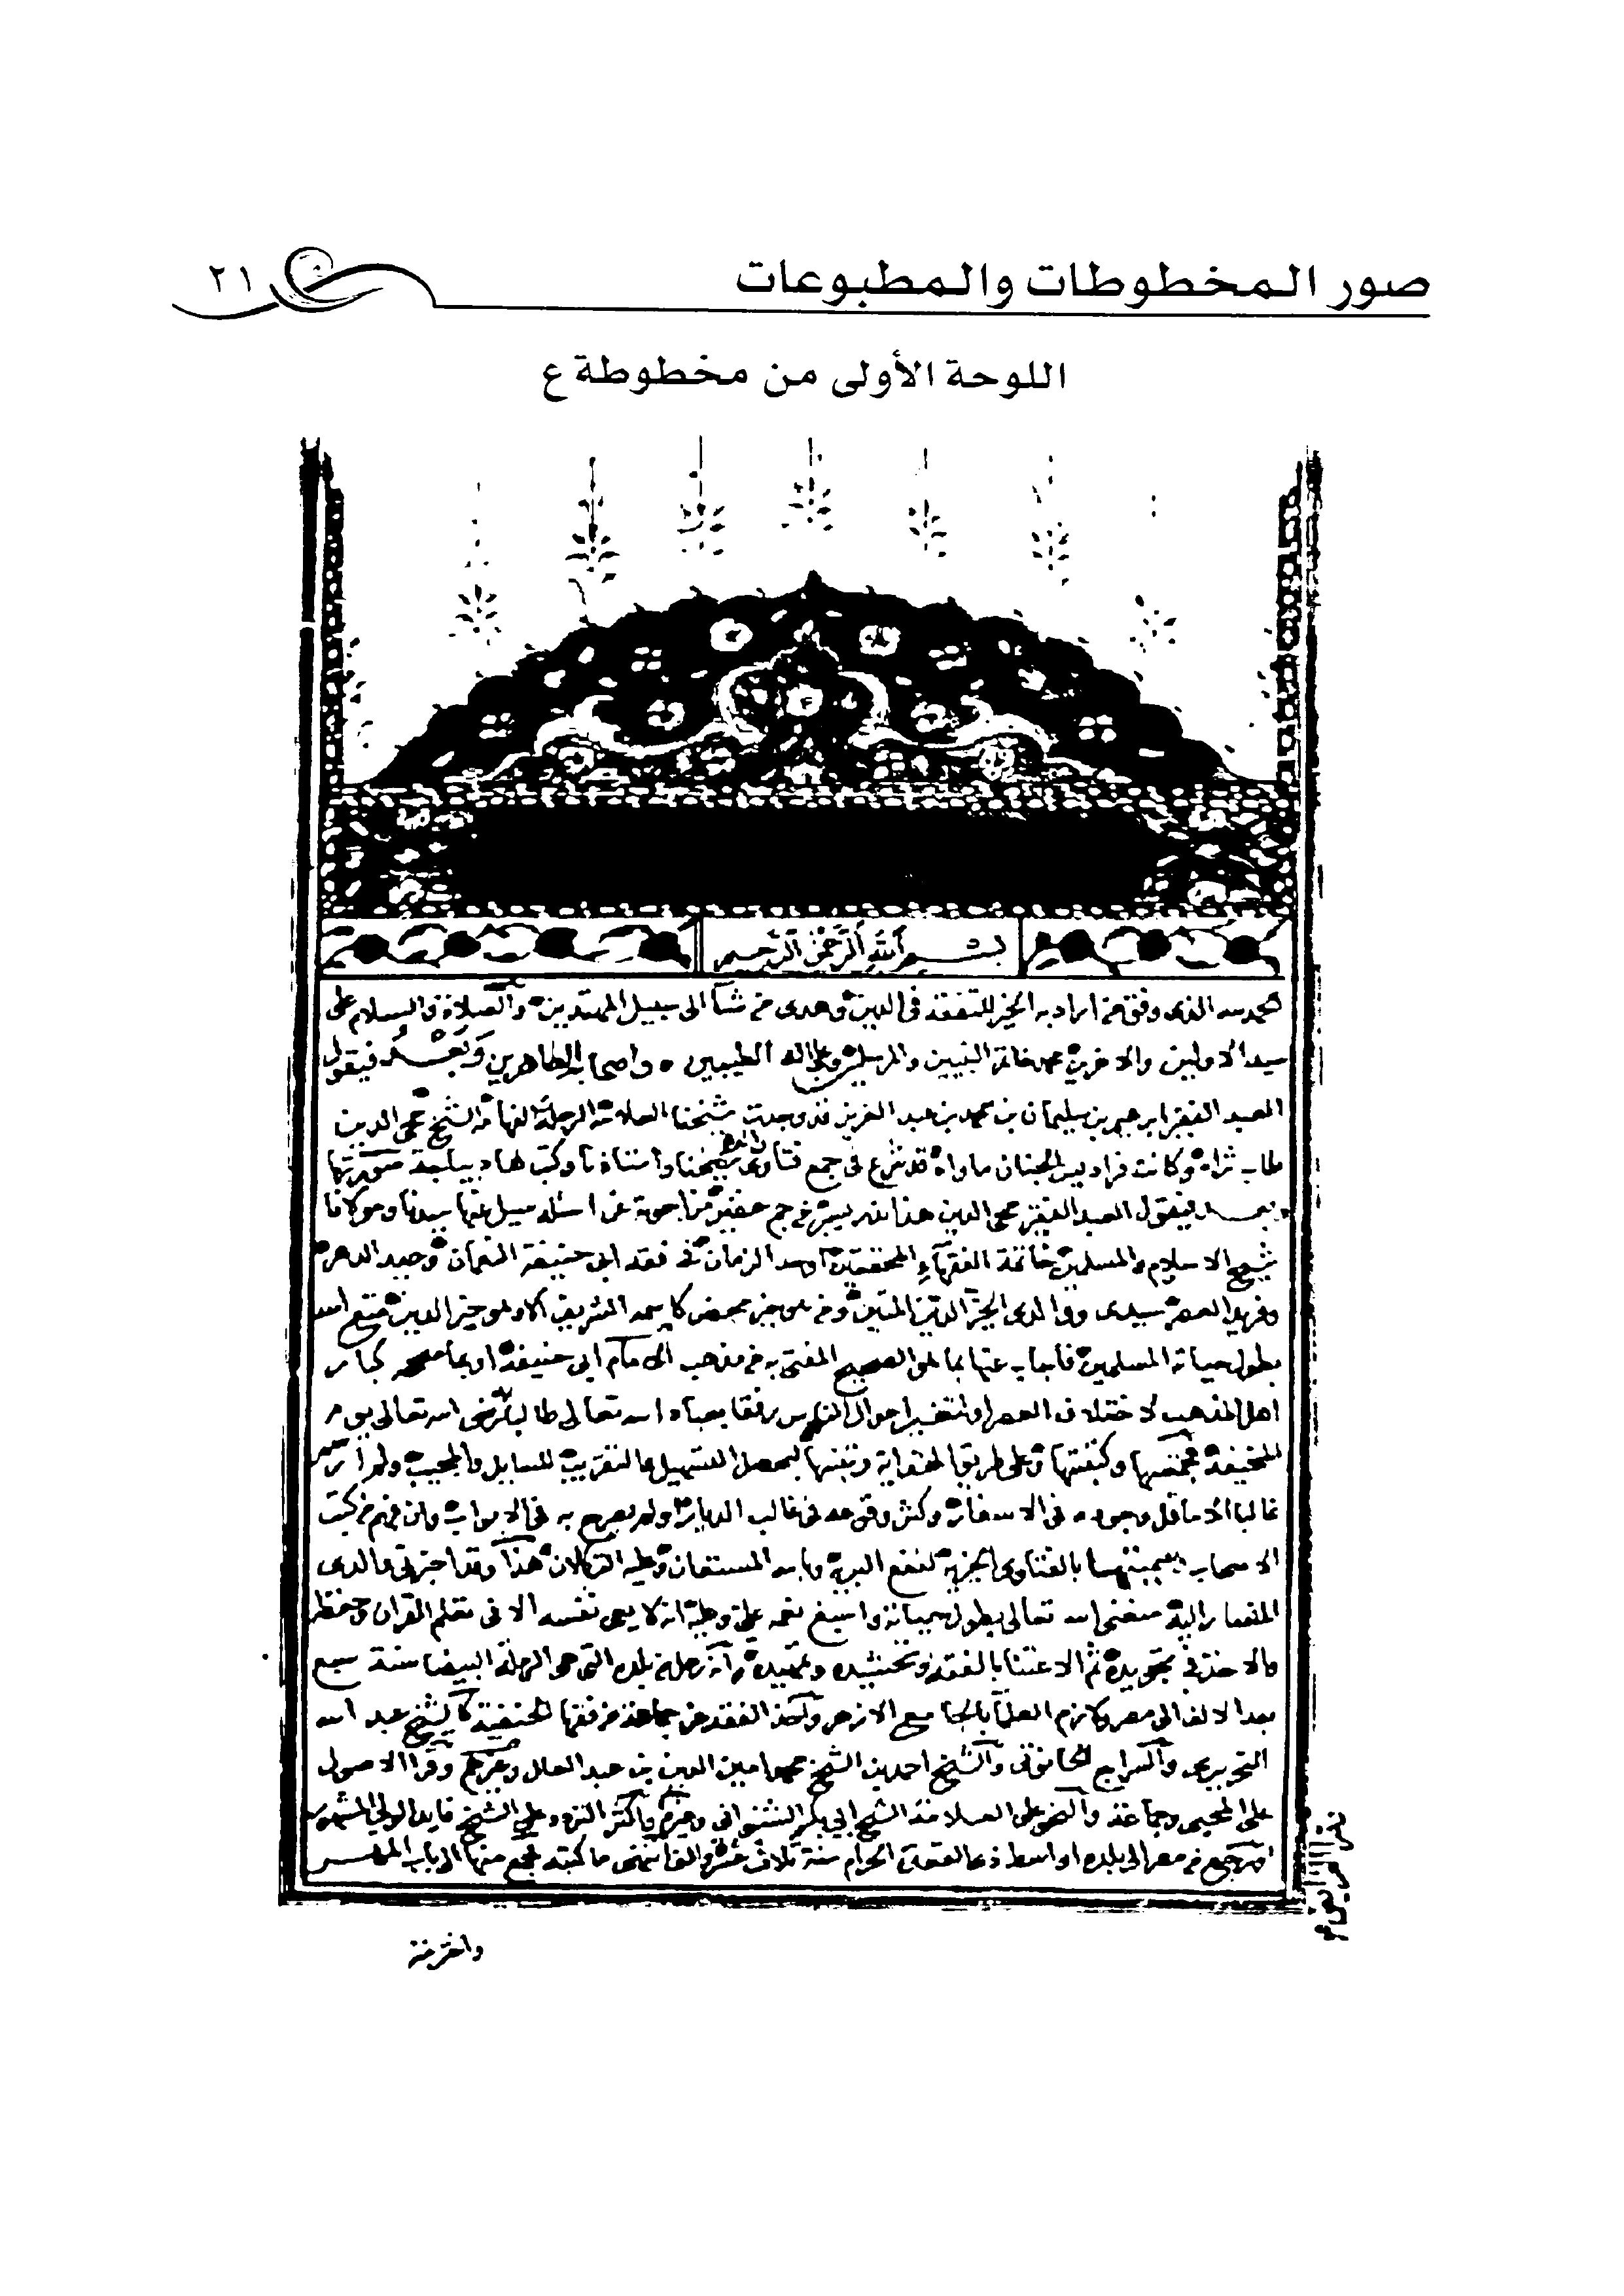 صور المخطوطات والمطبوعات
٢١
اللوحة الأولى من مخطوطة ع
بسم الله الرحمن الرحيم
الحمد لله الذي وفق من اراد به الخير للتفقه في الدين وهدى من شآ الى سبيل المهتدين والصلاة والسلام على
سيد الاولين والاخرين محمد خاتم النبيين والمرسلين وعلى اله الطيبين واصحابه الطاهرين وبعد فيقول
العبد الفقير ابرهيم بن سليمان بن محمد بن عبد العزيز قد وجدت شيخنا العلامة الرحلة الفهامة الشيخ محي الدين
طاب ثراه وكانت فراديس الجنان ماواه قد شرع في جمع فتاوى والده شيخنا واستاذنا وكتب لها ديباجة صورتها
وبعد فيقول العبد الفقير محي الدين هذا نذر يسير من جم غفير من اجوبة عن اسئله سيل عنها سيدنا ومولانا
شيخ الاسلام والمسلمين خاتمة الفقهآء المحققين اوحد الزمان في فقه ابي حنيفة النعمان وحيد الدهر
وفريد العصر سيدي ووالدي الخير الدين المتين ومن هو خير محض كاسمه الشريف الا وهو خير الدين متع الله
بطول حياته المسلمين فاجاب عنها بما هو الصحيح المفتى به من مذهب الامام ابي حنيفة او بما صححه كبار
اهل المذهب لاختلاف العصر او لتغير احوال الناس رفقا بعباد الله تعالى طالبا رضى الله تعالى يوم
للخيفة فجمعتها وكتبتها وعلى طريق الهداية رتبتها ليحصل التسهيل والتقريب للسايل والمجيب ولم ارسم
غالبا الا ما قل وجوده في الاسفار وكثر وقوعه في غالب الديار ولم يصرح به في الابواب وان فهم من كتب
الاصحاب وسميتها بالفتاوى الخيرية لنفع البرية وبالله المستعان وعليه التكلان هذا وقد اخبرني والدي
المشار اليه متعنى الله تعالى بطول حياته واسبغ نعمه علي وعليه انه لا يعي نفسه الا في تعلم القران وحفظه
والاخذ في تجويده ثم الاعتنا بالفقه وانه رحل من بلده التي هي الرملة البيضا سنة سبع
بعد الالف الى مصر ولازم العلمآ بالجامع الازهر واخذ الفقه عن جماعة من فقها الحنفية كالشيخ عبد الله
النحريري والسراج الحانوتي والشيخ احمد بن الشيخ محمد امين الدين بن عبد العال وغيرهم وقرا الاصول
على المحبي وجماعة والنحو على العلامة الشيخ ابي بكر الشنواني وغيرهم واكثر التردد على الشيخ فايد الولي المشهور
ثم رجع من مصر الى بلده اواسط ذي القعدة الحرام سنة ثلاث عشرة والف انتهى ما كتبه فجمع منها الى باب المهر
واخترمته